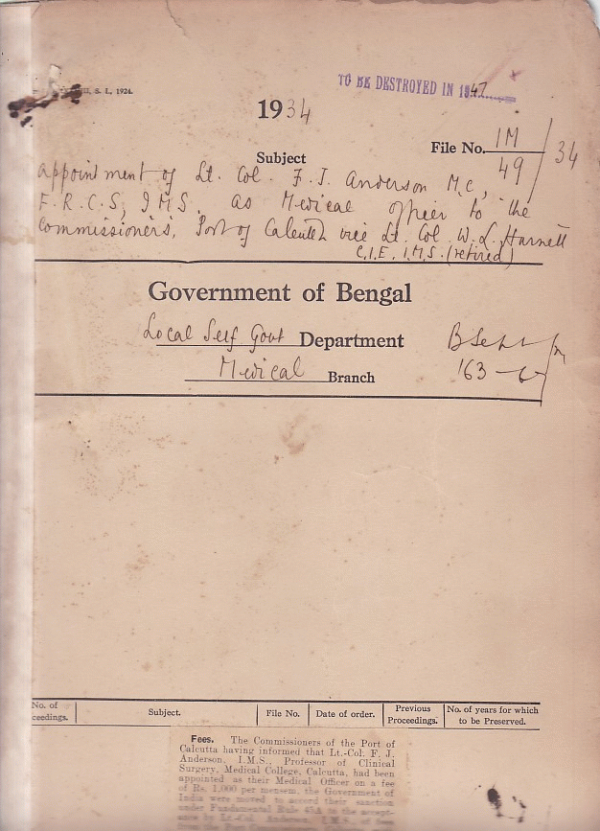 S. I., 1924.
TO BE DESTROYED IN 1947
1934
File No. 1M/49/34
Subject
Appointment of Lt. Col. F. J. Anderson M.C.,
F.R.C.S, I.M.S. as Medical officer to the
Commissioners, Port of Calcutta vice Lt. Col. W. L. Harnett
C.I.E, I.M.S. (retired)
Government of Bengal
Local Self Govt Department
B Sept
Medical Branch
163
No. of
ceedings.
Subject.
File No.
Date of order.
Previous
Proceedings.
No. of years for which
to be Preserved.
Fees. The Commissioners of the Port of
Calcutta having informed that Lt.-Col. F. J.
Anderson, I.M.S., Professor of Clinical
Surgery, Medical College, Calcutta, had been
appointed as their Medical Officer on a fee
of Rs. 1,000 per mensem, the Government of
India were moved to accord their sanction
under Fundamental Rule 45A to the accept-
ance by Lt.-Col. Anderson, I.M.S., of fees
from the Port